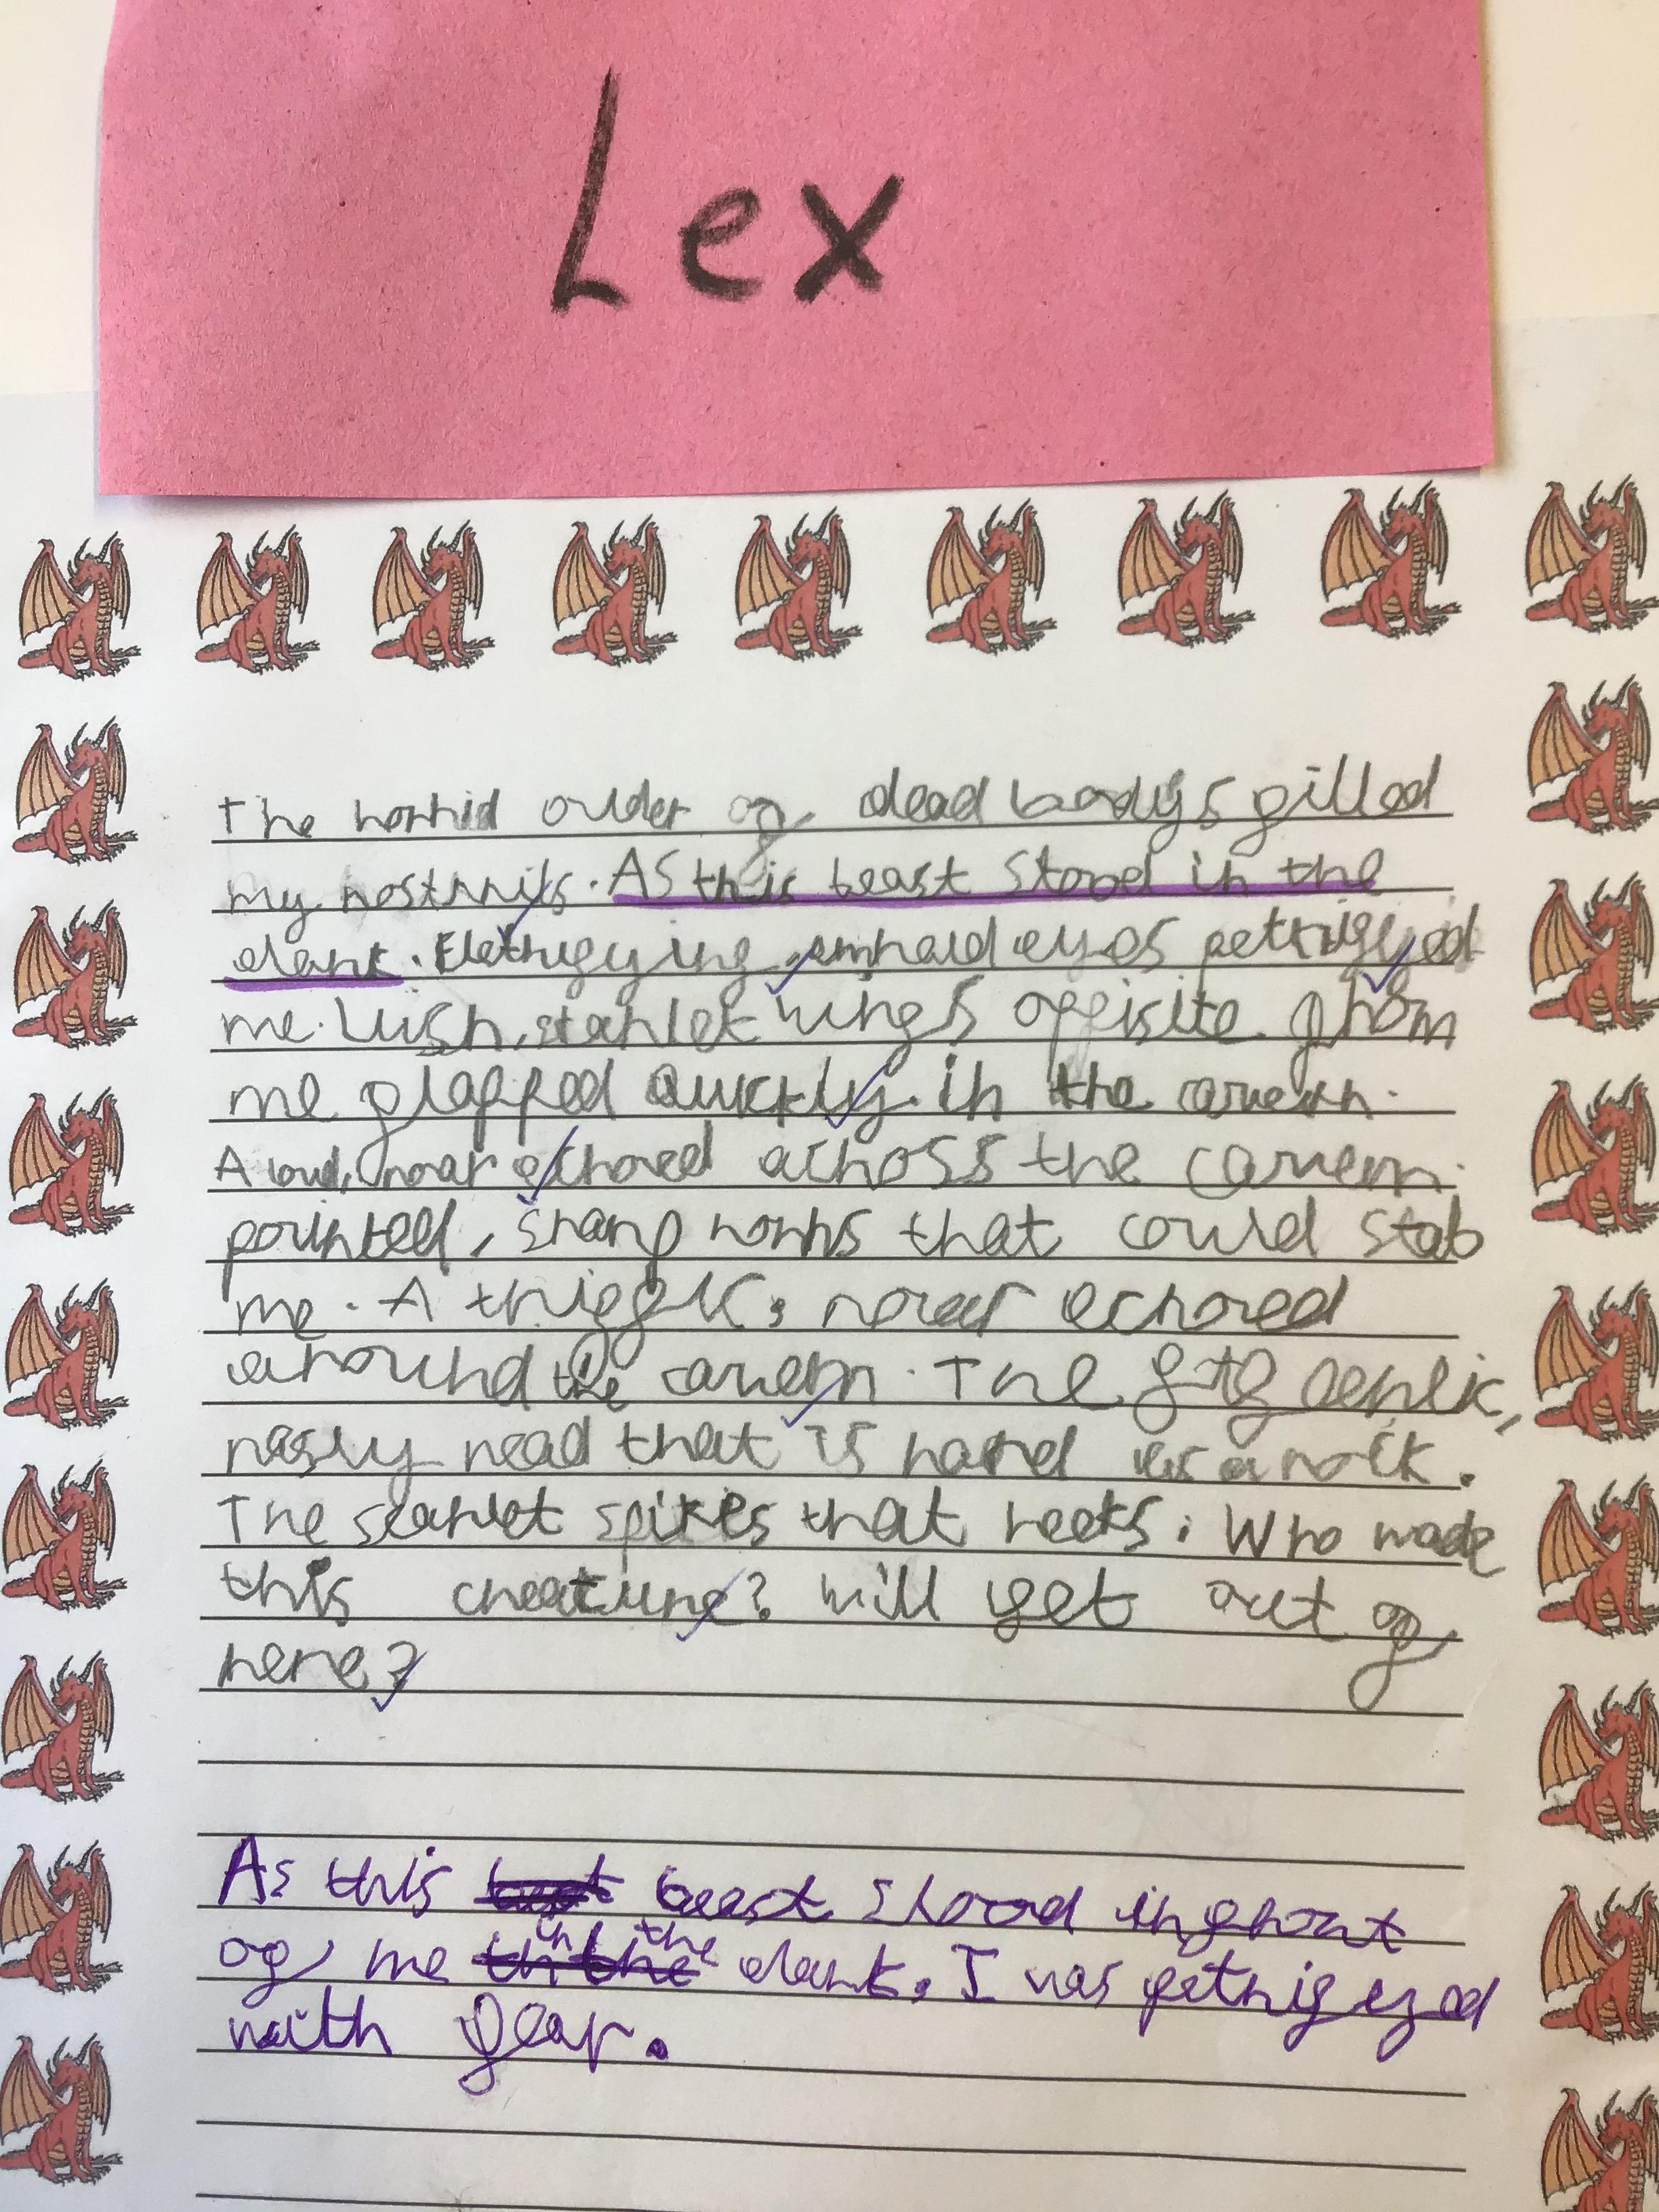 Lex
The horrid oulder of dead bodys filled
my nostrils. As this beast stood in the
dark. Eletrifying, emrald eyes petrifyed
me. Lush, starlet wings offisite from
me flapped quickly in the cavern.
A loud, roar echoed across the cavern.
pointed, sharp horns that could stab
me. A roar echored
around the cavern. The
nasly head that is hard as a rock.
The scarlet spikes that reeks. Who made
this creature? will get out of
here?
As this beast stood infront
of me in the dark. I was petrifeyed
with fear.